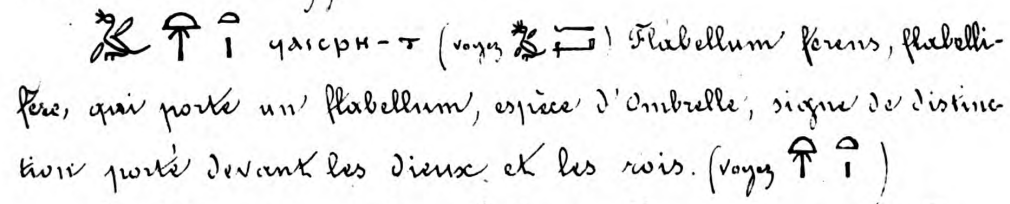 ϥⲁⲓⲥⲣⲏ-ⲧ (voyez ) Flabellum ferens, flabelli-
fère, qui porte un flabellum, espèce d'ombrelle, signe de distinc-
tion porté devant les dieux et les rois. (voyez )